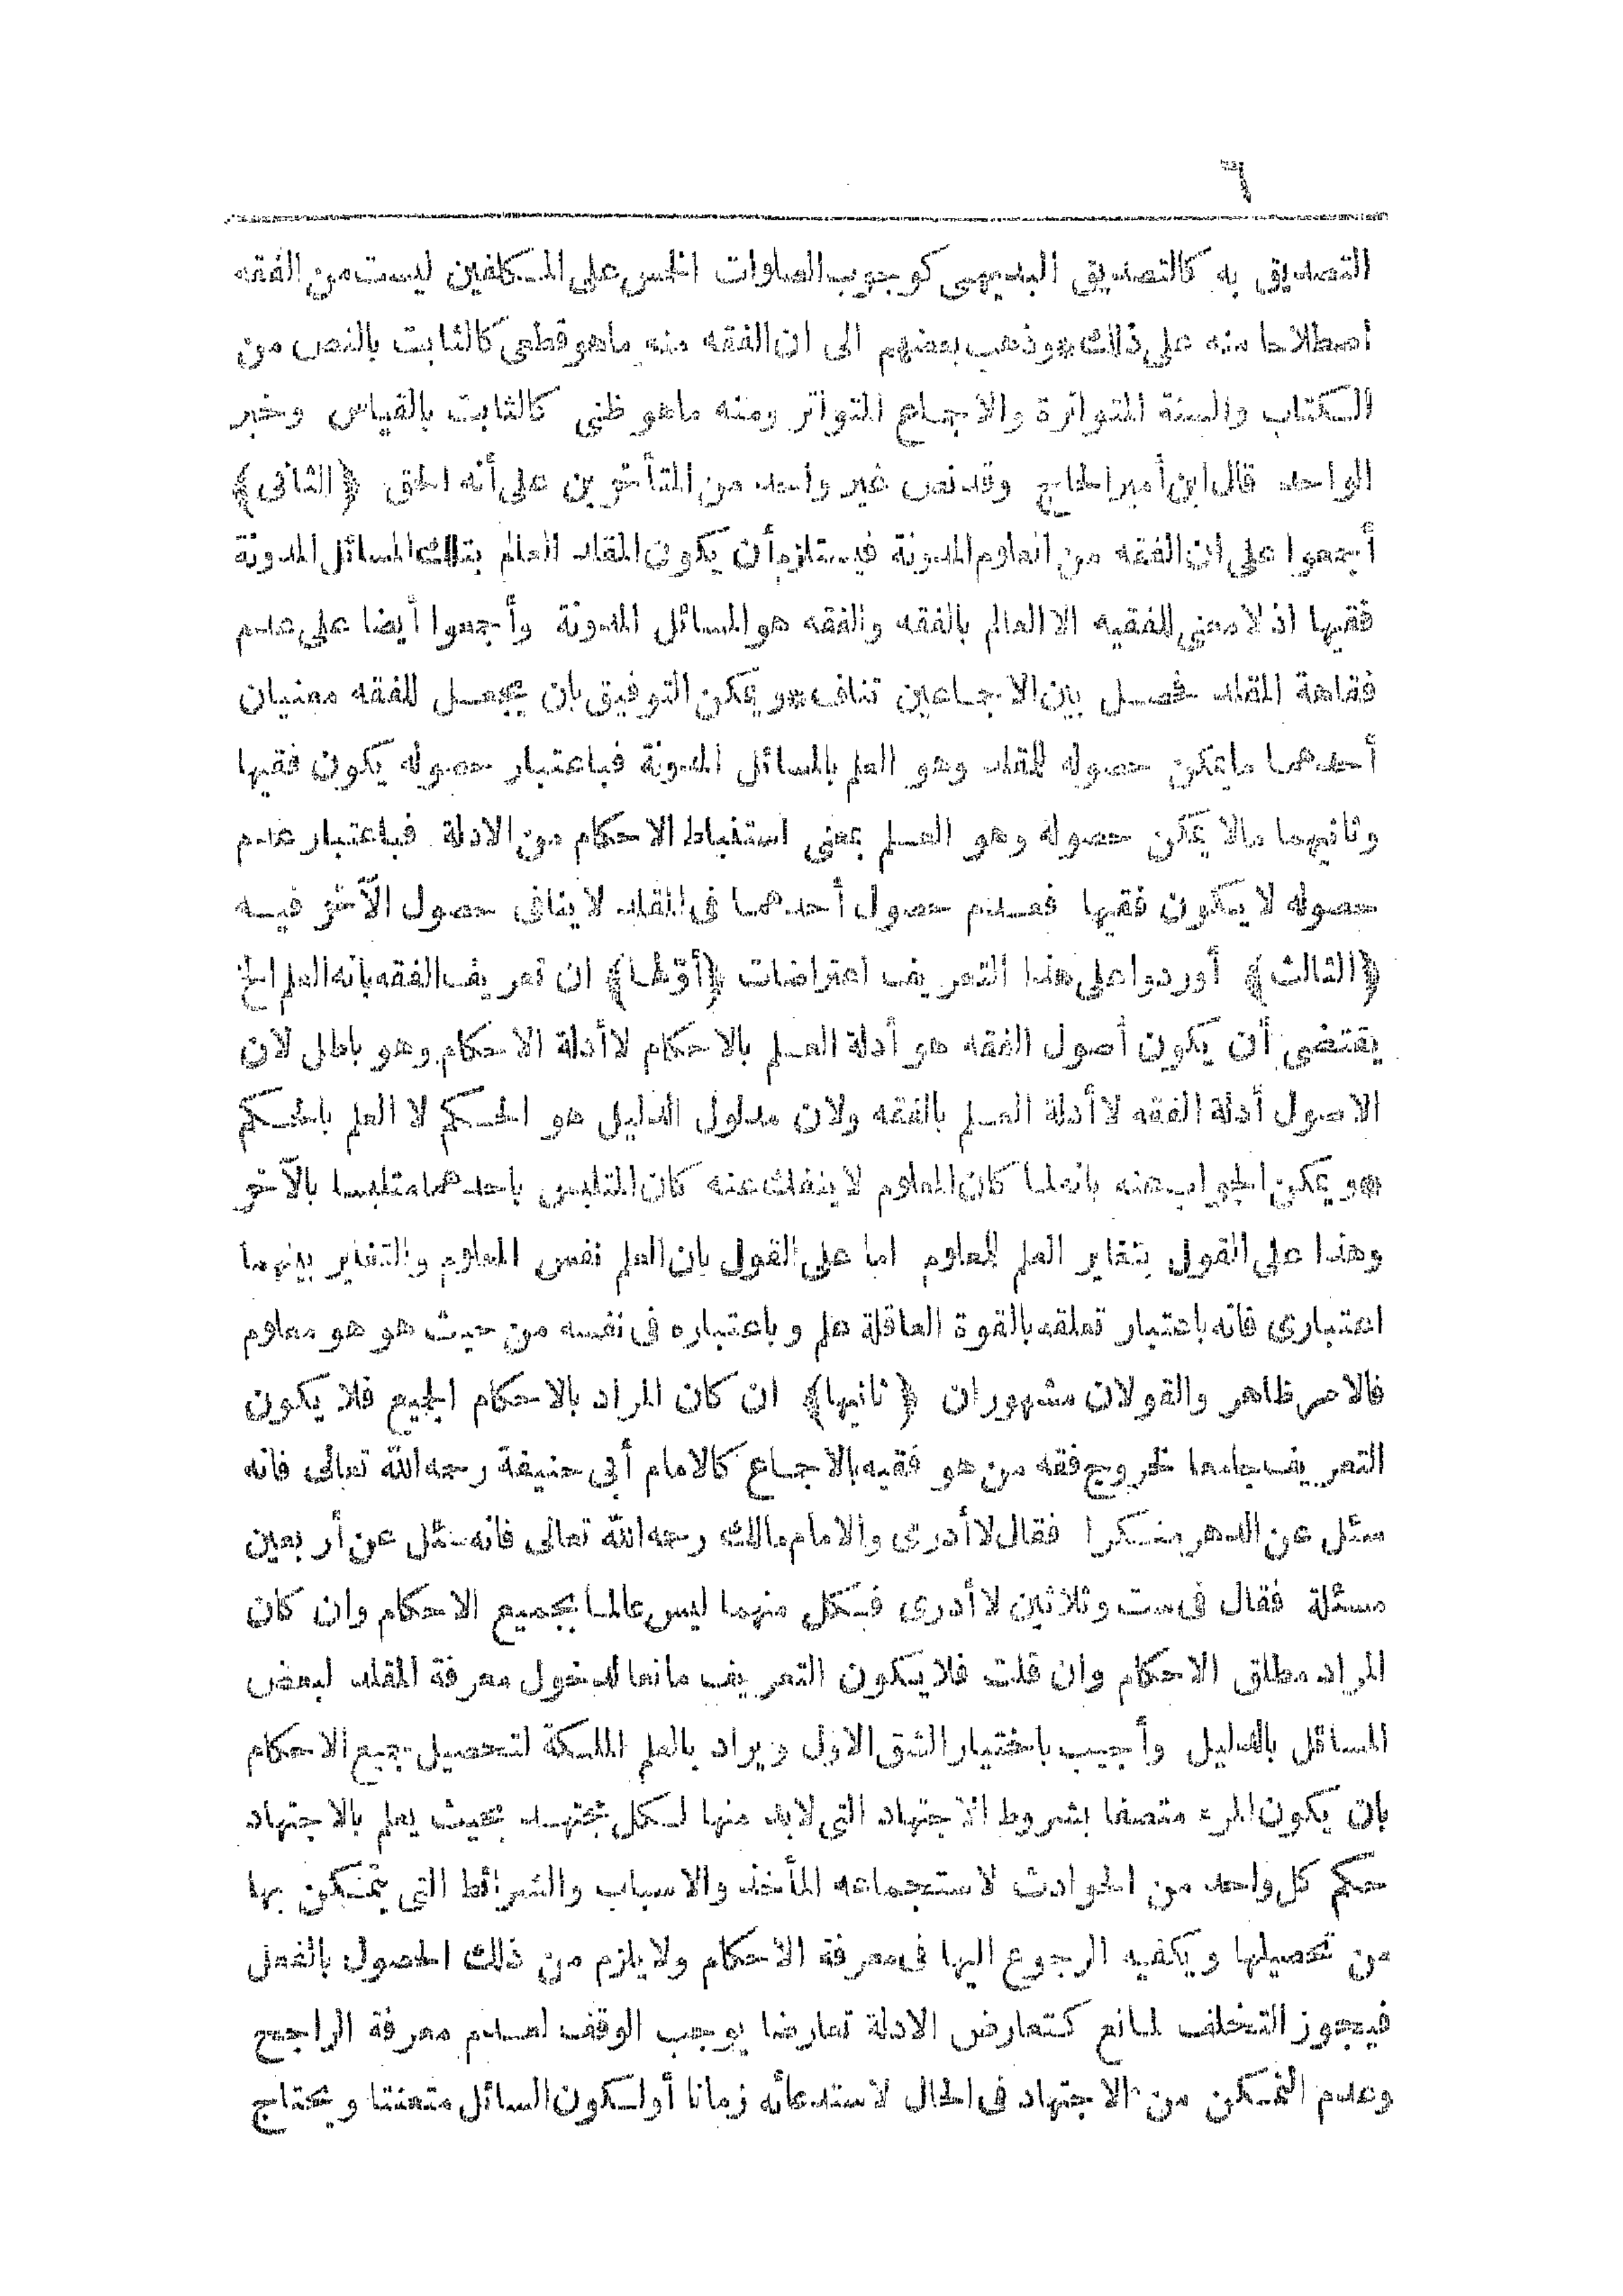 ٦
التصديق به كالتصديق البديهى كوجوب الصلوات الخمس على المكلفين ليست من الفقه
اصطلاحا منه على ذلك * وذهب بعضهم الى ان الفقه منه ماهو قطعى كالثابت بالنص من
الكتاب والسنة المتواترة والاجماع المتواتر ومنه ماهو ظنى كالثابت بالقياس وخبر
الواحد قال ابن أمير الحاج وقد نص غير واحد من المتأخرين على أنه الحق ﴿الثانى﴾
أجمعوا على ان الفقه من العلوم المدونة فيستلزم أن يكون المقلد العالم بتلك المسائل المدونة
فقيها اذ لا معنى للفقيه الا العالم بالفقه والفقه هو المسائل المدونة وأجمعوا أيضا على عدم
فقاهة المقلد فحصل بين الاجماعين تناف * ويمكن التوفيق بان يجعل للفقه معنيان
أحدهما مايمكن حصوله للمقلد وهو العلم بالمسائل المدونة فباعتبار حصوله يكون فقيها
وثانيهما مالا يمكن حصوله وهو العلم بمعنى استنباط الاحكام من الادلة فباعتبار عدم
حصوله لا يكون فقيها فعدم حصول أحدهما فى المقلد لا ينافى حصول الآخر فيه
﴿الثالث﴾ أوردوا على هذا التعريف اعتراضات ﴿أوّلها﴾ ان تعريف الفقه بانه العلم الخ
يقتضى أن يكون أصول الفقه هو أدلة العلم بالاحكام لا أدلة الاحكام وهو باطل لان
الاصول أدلة الفقه لا أدلة العلم بالفقه ولان مدلول الدليل هو الحكم لا العلم بالحكم
* ويمكن الجواب عنه بان لما كان المعلوم لا ينفك عنه كان المتلبس باحدهما متلبسا بالآخر
وهذا على القول بتغاير العلم للمعلوم اما على القول بان العلم نفس المعلوم والتغاير بينهما
اعتبارى فانه باعتبار تعلقه بالقوة العاقلة علم وباعتباره فى نفسه من حيث هو هو معلوم
فالامر ظاهر والقولان مشهوران ﴿ثانيها﴾ ان كان المراد بالاحكام الجميع فلا يكون
التعريف جامعا لخروج فقه من هو فقيه بالاجماع كالامام أبى حنيفة رحمه الله تعالى فانه
سئل عن الدهر منكرا فقال لا أدرى والامام مالك رحمه الله تعالى فانه سئل عن أربعين
مسئلة فقال فى ست وثلاثين لا أدرى فكل منهما ليس عالما بجميع الاحكام وان كان
المراد مطلق الاحكام وان قلت فلا يكون التعريف مانعا لدخول معرفة المقلد لبعض
المسائل بالدليل وأجيب باختيار الشق الاول ويراد بالعلم الملكة لتحصيل جميع الاحكام
بان يكون المرء متصفا بشروط الاجتهاد التى لابد منها لكل مجتهد بحيث يعلم بالاجتهاد
حكم كل واحد من الحوادث لاستجماعه المأخذ والاسباب والشرائط التى يتمكن بها
من تحصيلها ويكفيه الرجوع اليها فى معرفة الاحكام ولا يلزم من ذلك الحصول بالفعل
فيجوز التخلف لمانع كتعارض الادلة تعارضا يوجب الوقف لعدم معرفة الراجح
وعدم التمكن من الاجتهاد فى الحال لاستدعائه زمانا أولكون السائل متعنتا ويحتاج